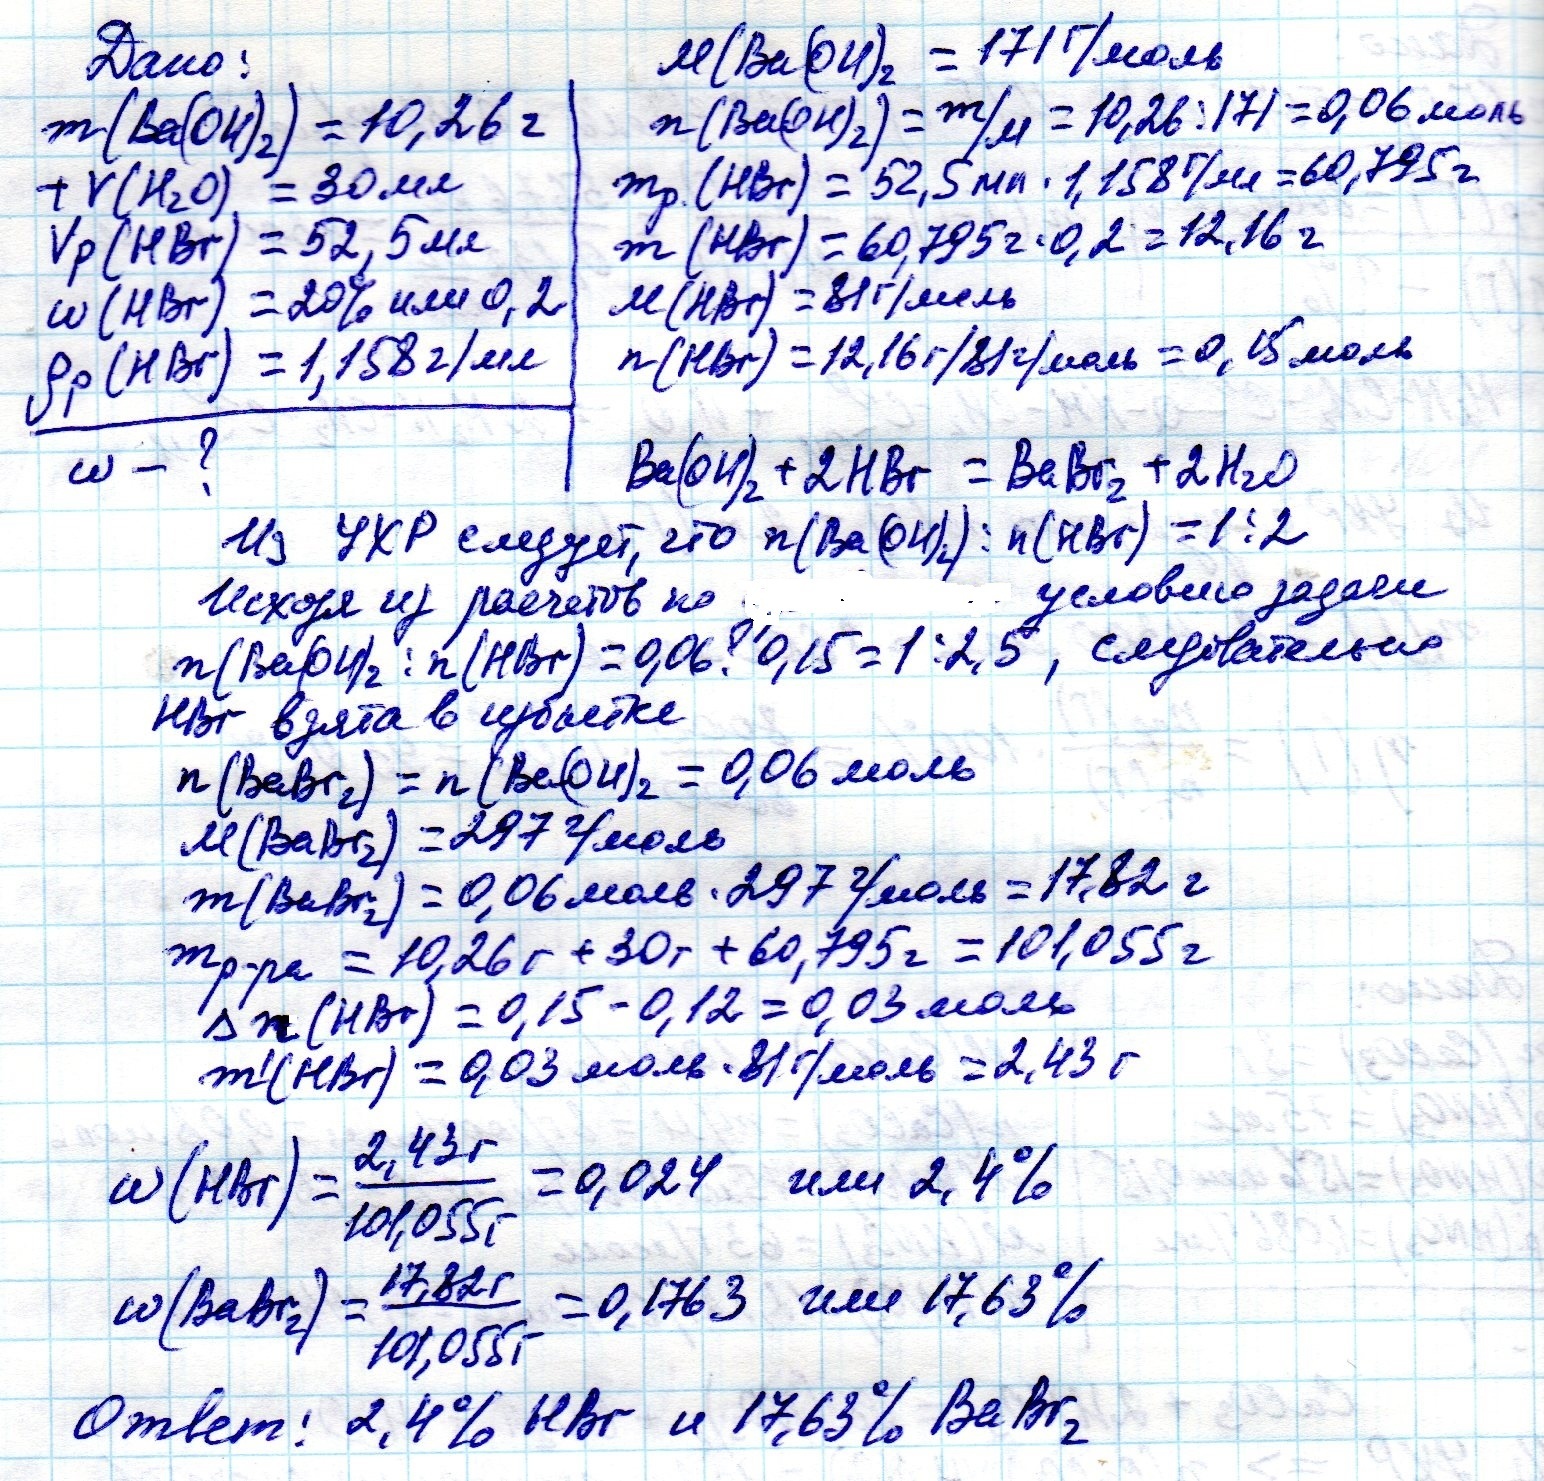 Дано:
m(Ba(OH)₂) = 10,26 г
+ V(H₂O) = 30 мл
Vр(HBr) = 52,5 мл
ω(HBr) = 20% или 0,2
ρр(HBr) = 1,158 г/мл
ω – ?
M(Ba(OH)₂ = 171 г/моль
n(Ba(OH)₂) = m/M = 10,26 : 171 = 0,06 моль
mр.(HBr) = 52,5 мл · 1,158 г/мл = 60,795 г
m(HBr) = 60,795 г · 0,2 = 12,16 г
M(HBr) = 81 г/моль
n(HBr) = 12,16 г/81 г/моль = 0,15 моль
Ba(OH)₂ + 2HBr = BaBr₂ + 2H₂O
Из УХР следует, что n(Ba(OH)₂) : n(HBr) = 1 : 2
Исходя из расчетов по условию задачи
n(Ba(OH)₂ : n(HBr) = 0,06 : 0,15 = 1 : 2,5, следовательно
HBr взята в избытке
n(BaBr₂) = n(Ba(OH)₂ = 0,06 моль
M(BaBr₂) = 297 г/моль
m(BaBr₂) = 0,06 моль · 297 г/моль = 17,82 г
mр-ра = 10,26 г + 30 г + 60,795 г = 101,055 г
Δn(HBr) = 0,15 - 0,12 = 0,03 моль
m'(HBr) = 0,03 моль · 81 г/моль = 2,43 г
ω(HBr) = 2,43 г / 101,055 г = 0,024 или 2,4%
ω(BaBr₂) = 17,82 г / 101,055 г = 0,1763 или 17,63%
Ответ: 2,4% HBr и 17,63% BaBr₂